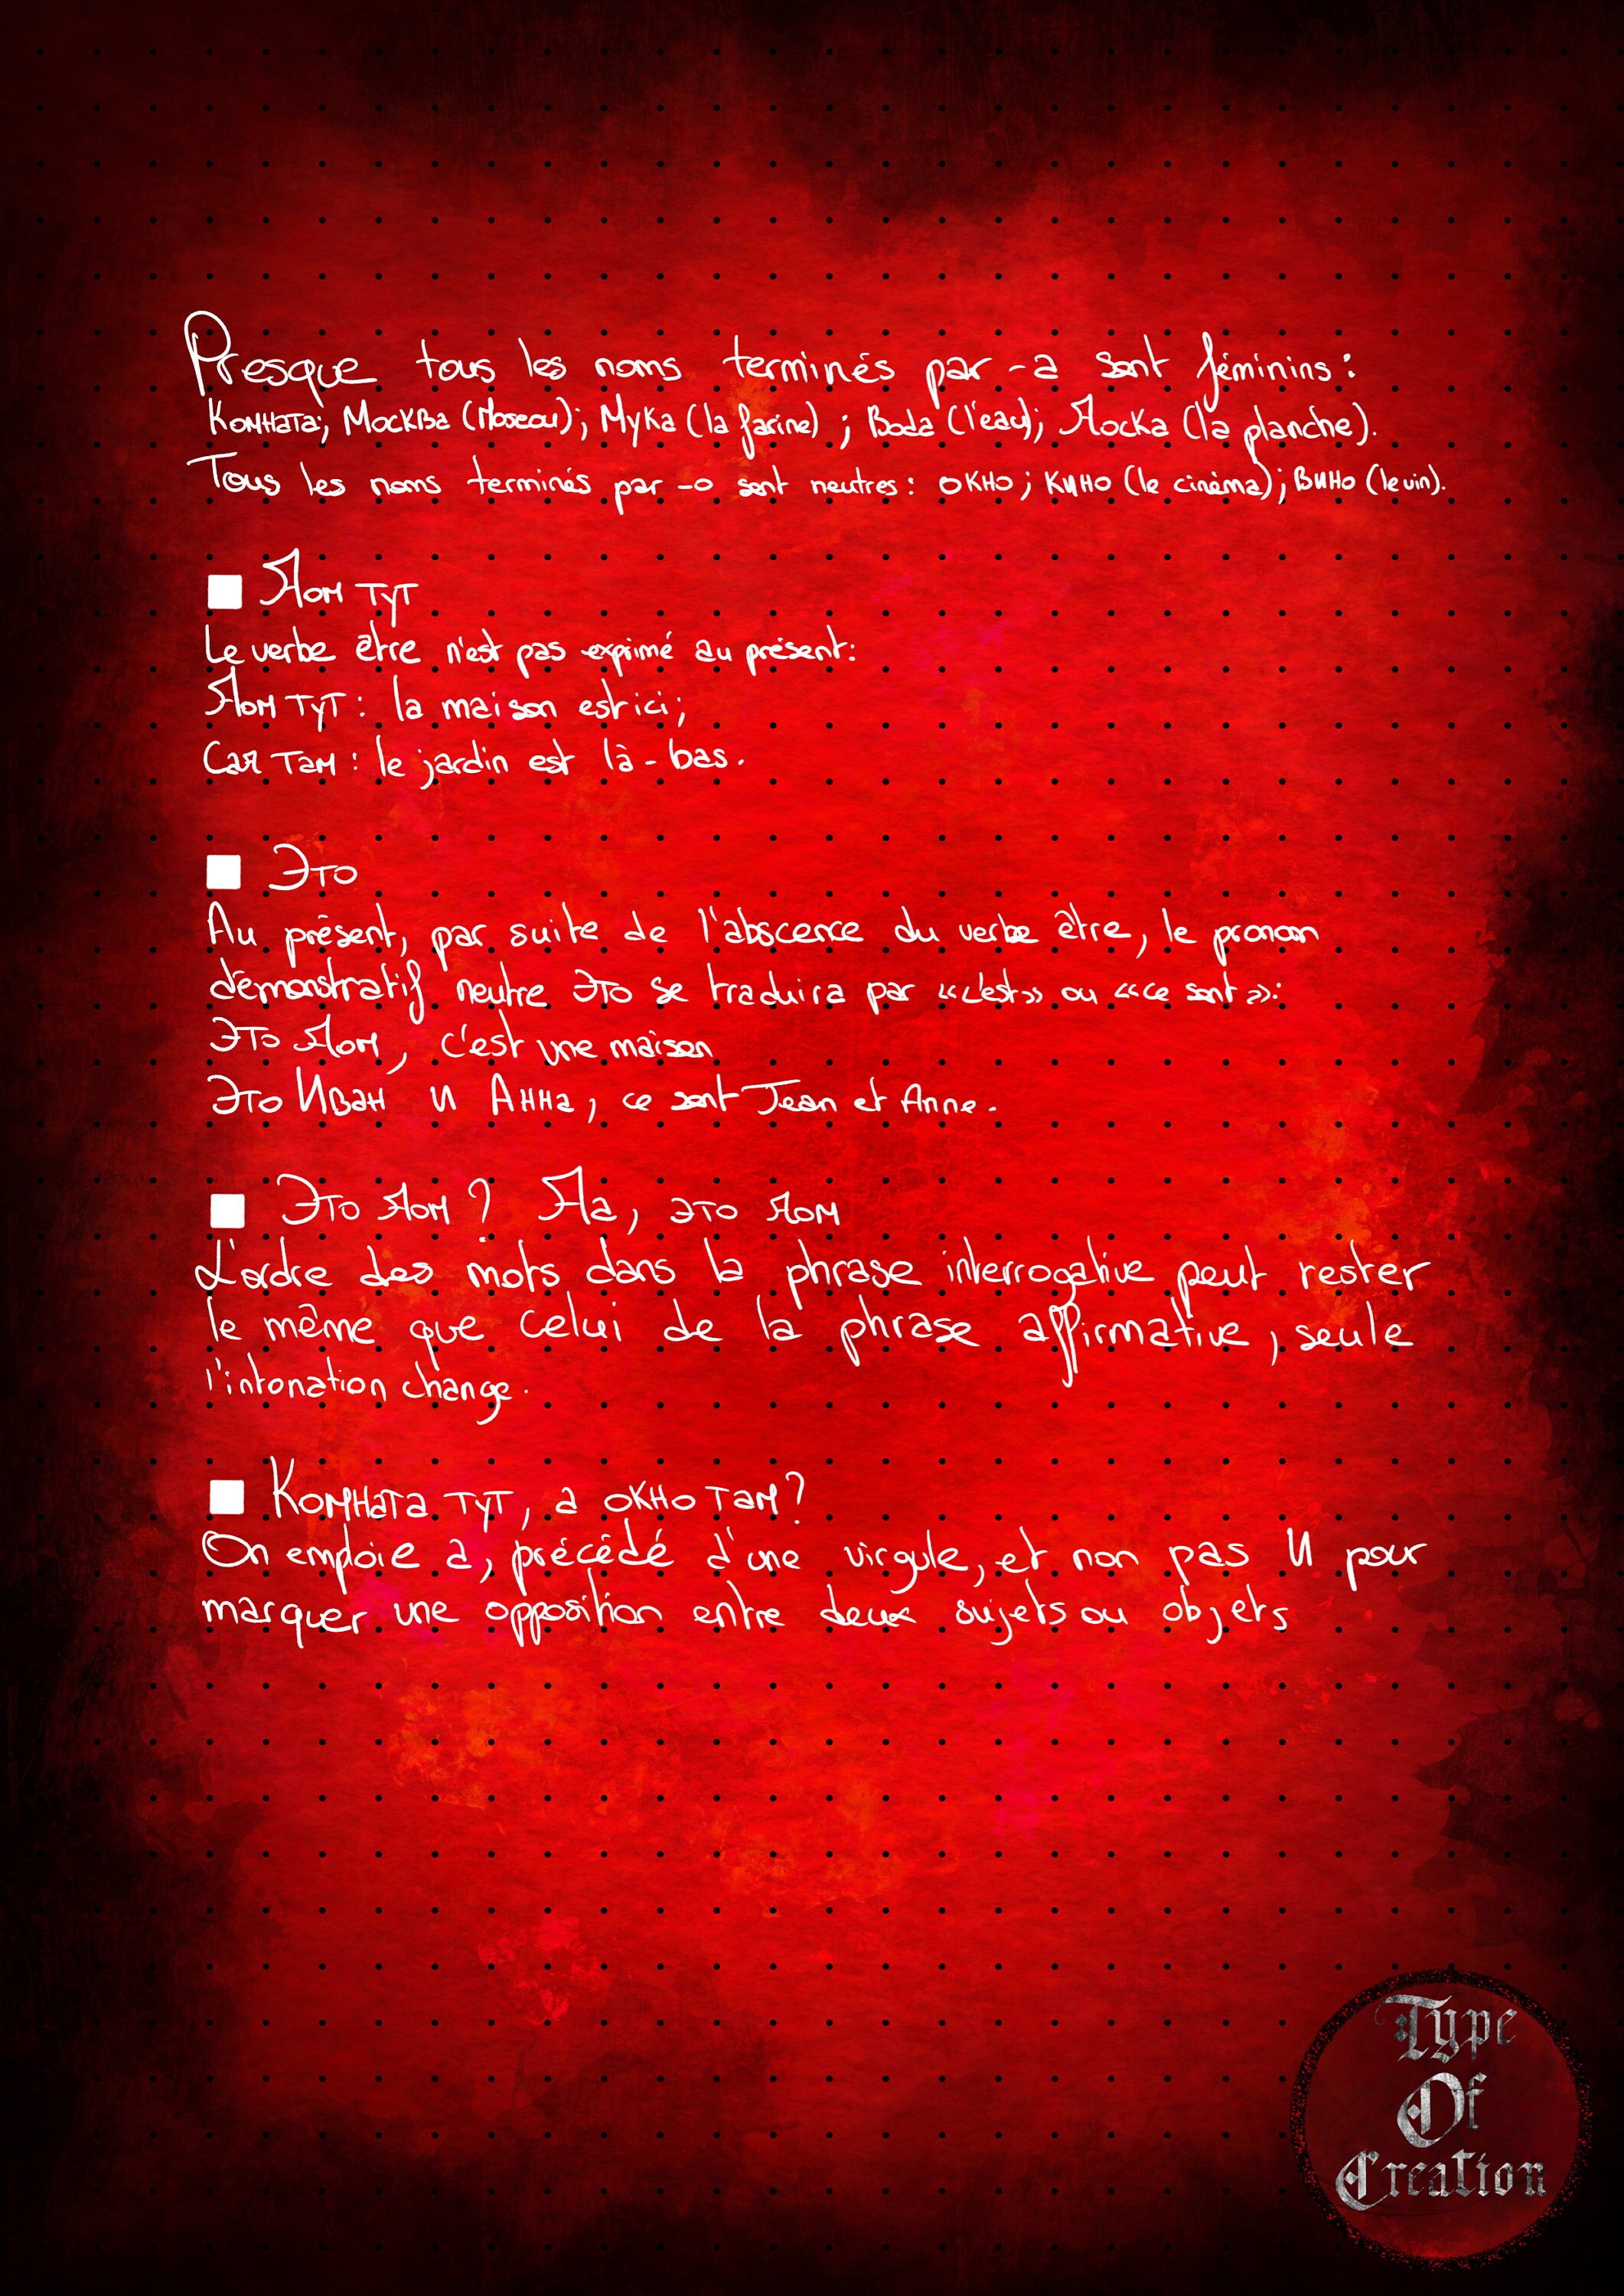 Presque tous les noms terminés par -a sont féminins :
Комната; Москва (Moscou); Мука (la farine) ; Вода (l'eau); Доска (la planche).
Tous les noms terminés par -o sont neutres : окно ; кино (le cinéma) ; вино (le vin).
■ Дом тут
Le verbe être n'est pas exprimé au présent:
Дом тут : la maison est ici ;
Сад там : le jardin est là-bas.
■ Это
Au présent, par suite de l'abscence du verbe être, le pronom
démonstratif neutre Это se traduira par «c'est» ou «ce sont»:
Это Дом, c'est une maison
Это Иван и Анна, ce sont Jean et Anne.
■ Это Дом ? Да, это дом
L'ordre des mots dans la phrase interrogative peut rester
le même que celui de la phrase affirmative, seule
l'intonation change.
■ Комната тут, а окно там?
On emploie а, précédé d'une virgule, et non pas И pour
marquer une opposition entre deux sujets ou objets
Type
Of
Creation